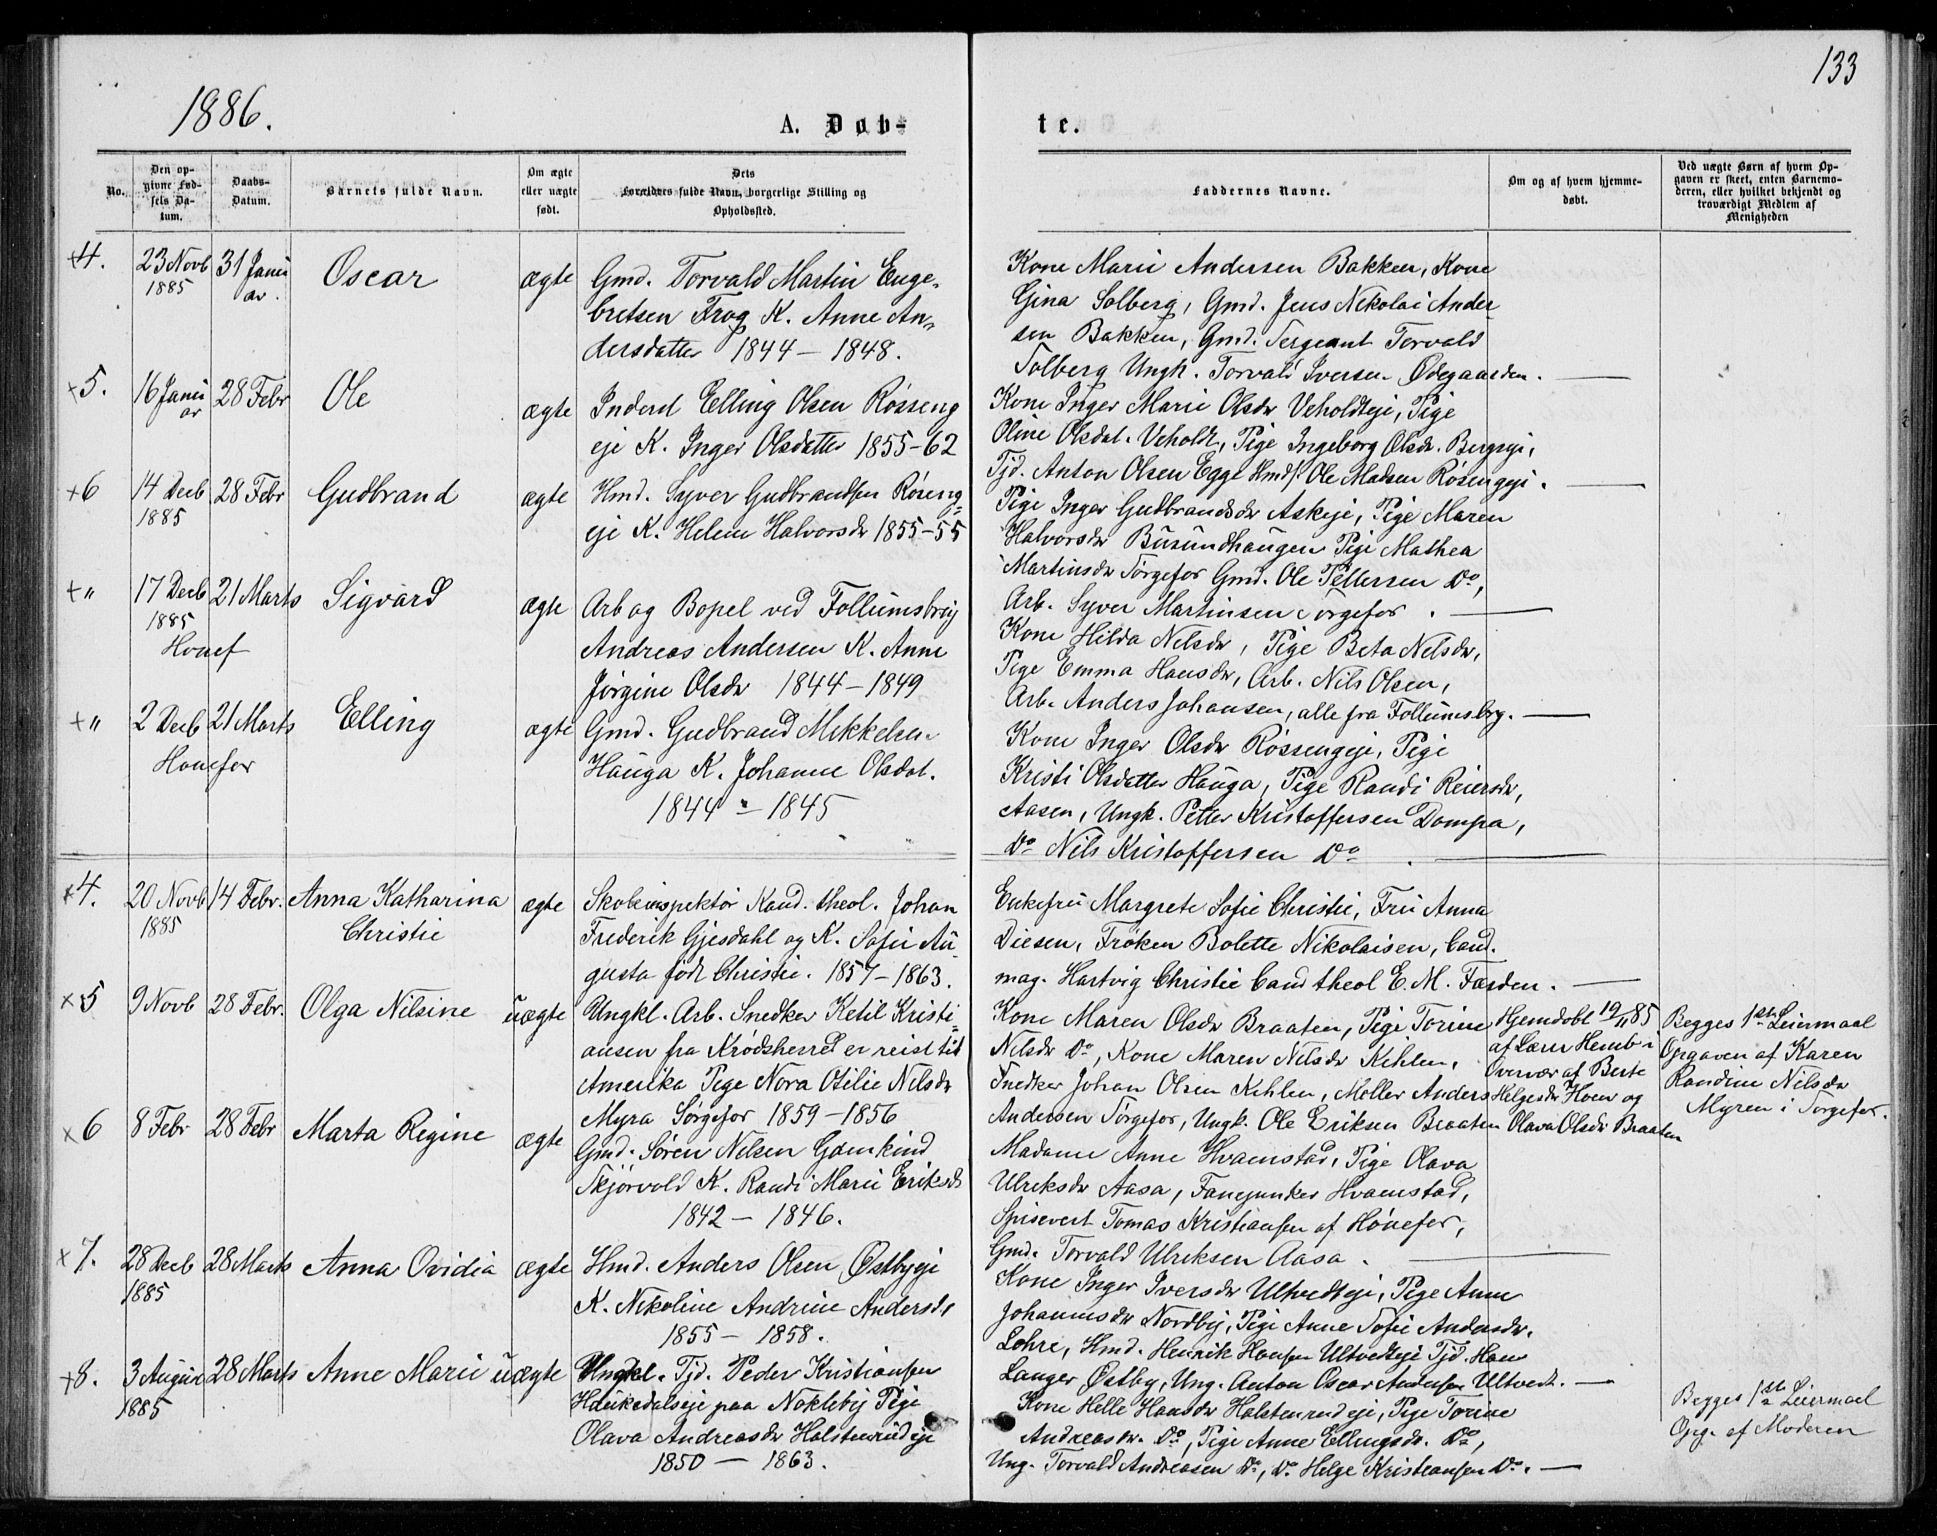 133
1886.
A. Døb-
te.
No.
Den op-
givne Fød-
sels Da-
tum.
Daabs-
Datum.
Barnets fulde Navn.
Om ægte
eller uægte
født.
Dets
Forældres fulde Navn, borgerlige Stilling og
Opholdssted.
Faddernes Navne.
Om og af hvem hjemme-
døbt.
Ved uægte Børn af hvem Op-
gaven er skeet, enten Barnemo-
deren, eller hvilket bekjendt og
troværdigt Medlem af
Menigheden
4. 23 Novb 31 Janu Oscar ægte Gmd. Torvald Martin Enge-
1885 ar.
bretsen Frog K. Anne An-
dersdatter 1844 - 1848.
Kone Marie Andersen Bakken, Kone
Gina Solberg, Gmd. Jens Nikolai Ander-
sen Bakken, Gmd. Sergeant Torvald
Solberg Ungk. Torvald Iversen Ødegaarden.
5. 16 Janu 28 Febr Ole ægte Inderst Elling Olsen Røsseng
ar
eje K. Inger Olsdatter 1855-62
Kone Inger Marie Olsdr Veholdteje, Pige
Oline Olsdat. Veholdt, Pige Ingeborg Olsdr. Bergseje,
Tjd. Anton Olsen Egge Hmd. Ole Madsen Røsengeje.
6 14 Decb 28 Febr Gudbrand ægte Hmd. Syver Gudbrandsen Røseng-
1885
eje K. Helene Halvorsdr 1855-55
Pige Inger Gudbrandsdr Askeje, Pige Maren
Halvorsdr Busundhaugen Pige Mathea
Martinsdr Sørgefos Gmd. Ole Pettersen Do,
Arb. Syver Martinsen Sørgefos.
" 17 Decb 21 Marts Sigvard ægte Arb og Bopel ved Follumsbrug
1885
Honef
Andreas Andersen K. Anne
Jørgine Olsdr 1844 - 1849
Kone Hilda Nelsdr, Pige Beta Nelsdr,
Pige Emma Hansdr, Arb. Nils Olsen,
Arb. Anders Johansen, alle fra Follumsbrg.
" 2 Decb 21 Marts Elling ægte Gmd. Gudbrand Mikkelsen
Honefos
Hauga K. Johanne Olsdat.
1844 - 1845
Kone Inger Olsdr Røssengeje, Pige
Kristi Olsdatter Hauga, Pige Randi Reiersdr,
Aasen, Ungk. Petter Kristoffersen Dompa,
Do Nils Kristoffersen Do
4. 20 Novb 14 Febr. Anna Katharina ægte Skoleinspektør Kand. theol. Johan
1885 Christie
Frederik Gjesdahl og K. Sofie Au-
gusta født Christie. 1857 - 1863.
Enkefru Margrete Sofie Christie, Fru Anna
Diesen, Frøken Bolette Nikolaisen, Cand.
mag. Hartvig Christie Cand theol E. M. Færden.
5 9 Novb 28 Febr. Olga Nilsine uægte Ungkl. Arb. Snedker Ketil Kristi-
ansen fra Krødsherred er reist til
Amerika Pige Nora Otilie Nilsdr
Myra Sørgefos 1859 - 1856
Kone Maren Olsdr Braaten, Pige Torine
Nilsdr Do, Kone Maren Nilsdr Kihlen,
Snedker Johan Olsen Kihlen, Møller Anders
Andersen Sørgefos, Ungk. Ole Eriksen Braaten
Hjemdøbt 19/11 85
af Lærer Hemb i
Overvær af Berte
Helgesdr Hoen og
Olava Olsdr Braaten
Begges 1ste Leiermaal
Opgaven af Karen
Randine Nilsdr
Myren i Sørgefos.
6 8 Febr 28 Febr Marta Regine ægte Gmd. Søren Nelsen Gamkind
Skjørvold K. Randi Marie Eriksdr
1842 - 1846.
Madame Anne Hvamstad, Pige Olava
Ulriksdr Aasa, Fanejunker Hvamstad,
Spisevert Tomas Kristiansen af Hønefos,
Gmd. Torvald Ulriksen Aasa.
7. 28 Decb 28 Marts Anna Ovidia ægte Hmd. Anders Olsen Østbyeje
1885
K. Nikoline Andrine Andersdr
1855 - 1858.
Kone Inger Iversdr Ultvedteje, Pige Anne
Johannesdr Nordby, Pige Anne Sofie Andersdr.
Lohre, Hmd. Henrik Hansen Ultvedteje Tjd. Hans
Langer Østby, Ung. Anton Oscar Andersen Ultvedt.
8. 3 August 28 Marts Anne Marie uægte Ungkl. Tjd. Peder Kristiansen
1885
paa Nokleby Pige
Olava Andreasdr Holstenrudeje
1850 - 1863.
Kone Helle Hansdr Holstenrudeje, Pige Torine
Andreasdr. Do, Pige Anne Ellingsdr. Do,
Ung. Torvald Andreasen Do, Do Helge Kristiansen Do.
Begges 1ste Leiermaal
Opg. af Moderen